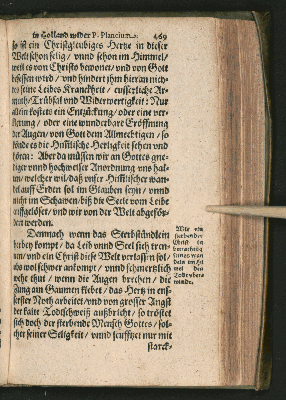 in Holland wider P. Plancium. 469
so ist ein Christgleubiges Hertze in dieser
Welt schon selig / vnnd schon im Himmel /
weil es von Christo bewonet / vnd von Gott
besessen wird / vnd hindert jhm hieran nich-
tes seine Leibes Kranckheit / eusserliche Ar-
muth / Trübsal vnd Widerwertigkeit: Nur
allein kostets ein Entzückung / oder eine ver-
/ oder eine wunderbare Eröffnung
der Augen / von Gott dem Allmechtigen / so
köndte es die Himlische Herligkeit sehen vnd
hören: Aber da müssen wir an Gottes gne-
tiger vnnd hochweiser Anordnung vns hal-
ten / welcher wil / daß vnser Himlischer wan-
del auff Erden sol im Glauben seyn / vnnd
nicht im Schawen / biß die Seele vom Leibe
auffgelöset / vnd wir von der Welt abgefor-
dert werden.
Demnach wenn das Sterbstündlein
herbey kompt / da Leib vnnd Seel sich tren-
nen / vnd ein Christ diese Welt verlassen sol /
obs wol schwer ankompt / vnnd schmertzlich
wehe thut / wenn die Augen brechen / die
Zung am Gaumen klebet / das Hertz in eus-
serster Noth arbeitet / vnd von grosser Angst
der kalte Todtschweiß außbricht / so tröstet
sich doch der sterbende Mensch Gottes / sol-
cher seiner Seligkeit / vnnd seufftzet nur mit
starck-
Wie ein
sterbender
Christ in
betrachtung
seines wan
dels im Hi
mel den
Todt vber
winde.